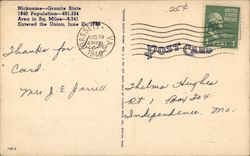 Nickname—Granite State
1940 Population—491,524
Area in Sq. Miles—9,341
Entered the Union, June 21, 1788
25¢
POST CARD
1948
Thanks for
Card.
Mrs J. E. Jarrell
Thelma Hughes
Rt 1 Box 204
Independence, Mo.